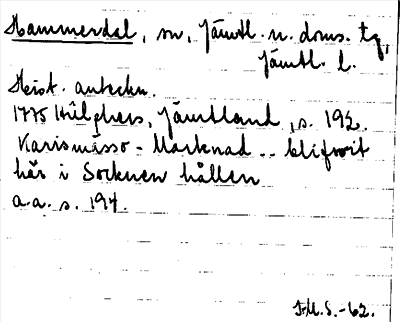 Hammerdal, sn, Jämtl. n. doms. tg,
Jämtl. l.
Hist. anteckn.
1775 Hülphers, Jämtland, s. 192.
Karismässo-Marknad .. blifwit
här i Socknen hållen
a.a. s. 194.
I.M.S.-62.